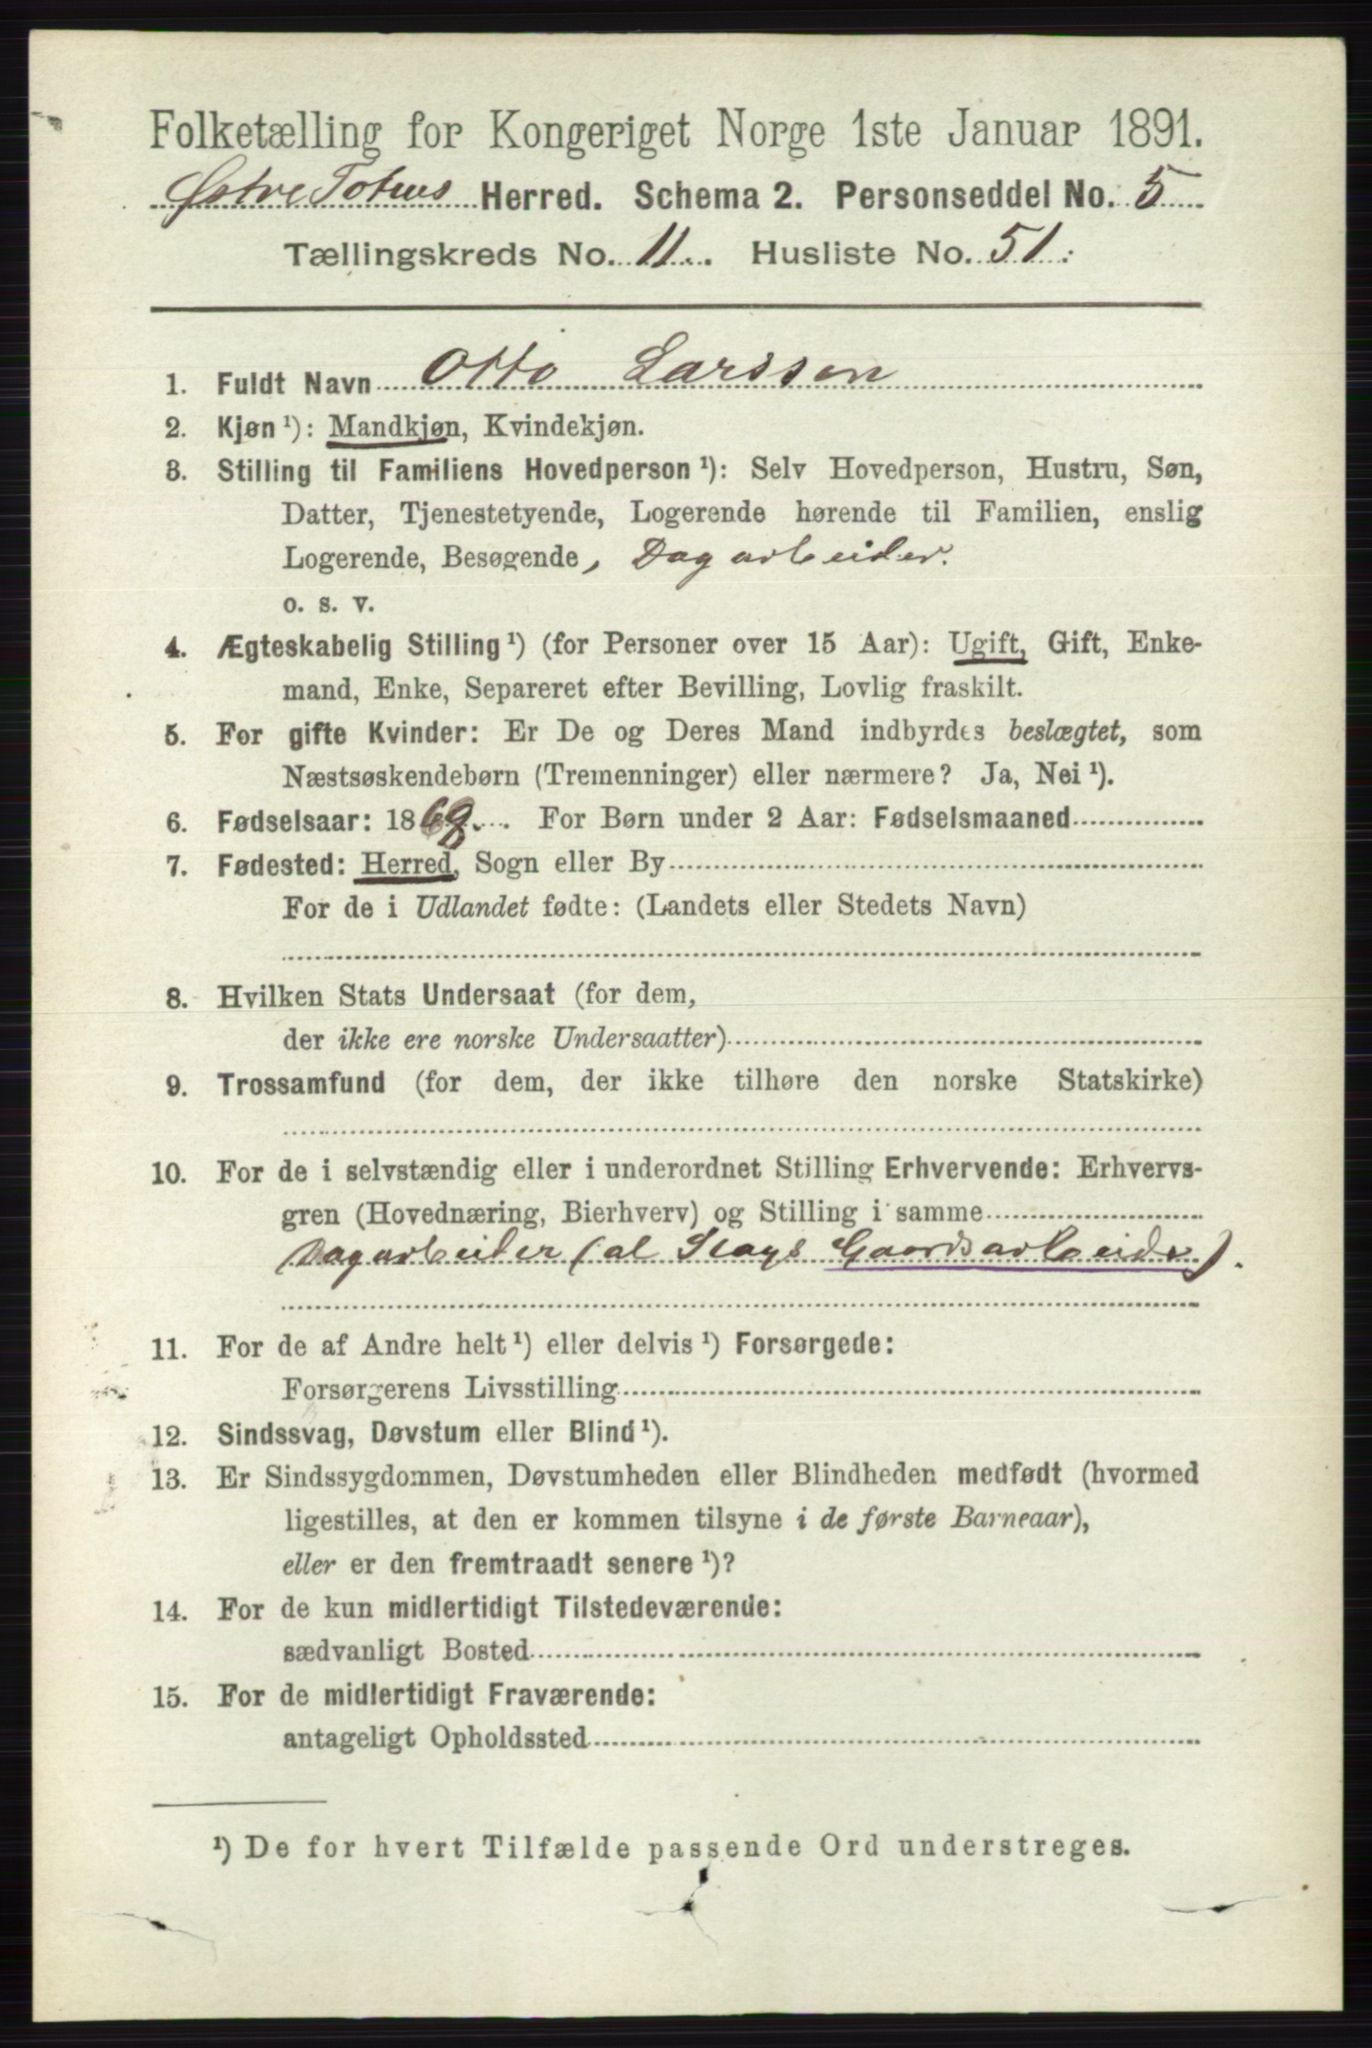 Folketælling for Kongeriget Norge 1ste Januar 1891.
Østre Totens Herred. Schema 2. Personseddel No. 5
Tællingskreds No. 11. Husliste No. 51.
1. Fuldt Navn Otto Larssen
2. Kjøn ¹): Mandkjøn, Kvindekjøn.
3. Stilling til Familiens Hovedperson ¹): Selv Hovedperson, Hustru, Søn,
Datter, Tjenestetyende, Logerende hørende til Familien, enslig
Logerende, Besøgende, Dagarbeider.
o. s. v.
4. Ægteskabelig Stilling ¹) (for Personer over 15 Aar): Ugift, Gift, Enke-
mand, Enke, Separeret efter Bevilling, Lovlig fraskilt.
5. For gifte Kvinder: Er De og Deres Mand indbyrdes beslægtet, som
Næstsøskendebørn (Tremenninger) eller nærmere? Ja, Nei ¹).
6. Fødselsaar: 1868. For Børn under 2 Aar: Fødselsmaaned
7. Fødested: Herred, Sogn eller By
For de i Udlandet fødte: (Landets eller Stedets Navn)
8. Hvilken Stats Undersaat (for dem,
der ikke ere norske Undersaatter)
9. Trossamfund (for dem, der ikke tilhøre den norske Statskirke)
10. For de i selvstændig eller i underordnet Stilling Erhvervende: Erhvervs-
gren (Hovednæring, Bierhverv) og Stilling i samme
Dagarbeider (al Slags Gaardsarbeide).
11. For de af Andre helt ¹) eller delvis ¹) Forsørgede:
Forsørgerens Livsstilling
12. Sindssvag, Døvstum eller Blind ¹).
13. Er Sindssygdommen, Døvstumheden eller Blindheden medfødt (hvormed
ligestilles, at den er kommen tilsyne i de første Barneaar),
eller er den fremtraadt senere ¹)?
14. For de kun midlertidigt Tilstedeværende:
sædvanligt Bosted
15. For de midlertidigt Fraværende:
antageligt Opholdssted
¹) De for hvert Tilfælde passende Ord understreges.